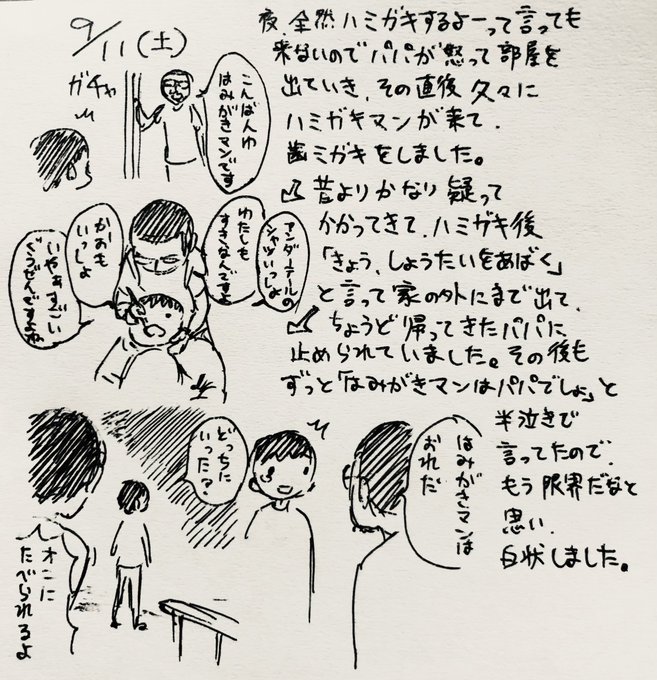 9/11(土)
夜、全然ハミガキするよーって言っても
来ないのでパパが怒って部屋を
出ていき、その直後 久々に
ハミガキマンが来て、
歯ミガキをしました。
昔よりかなり疑って
かかってきて、ハミガキ後
「きょう、しょうたいをあばく」
と言って家の外にまで出て、
ちょうど帰ってきたパパに
止められていました。その後も
ずっと「はみがきマンはパパでしょ」と
半泣きで
言ってたので、
もう限界だなと
思い、
白状しました。
ガチャ
こんばんゆ
はみがきマンです
アンダーテールの
シャツいっしょ
わたしも
すきなんですよ
かおも
いっしょ
いやぁすごい
ぐうぜんですよね
オニに
たべられるよ
どっちに
いった?
はみがきマンは
おれだ